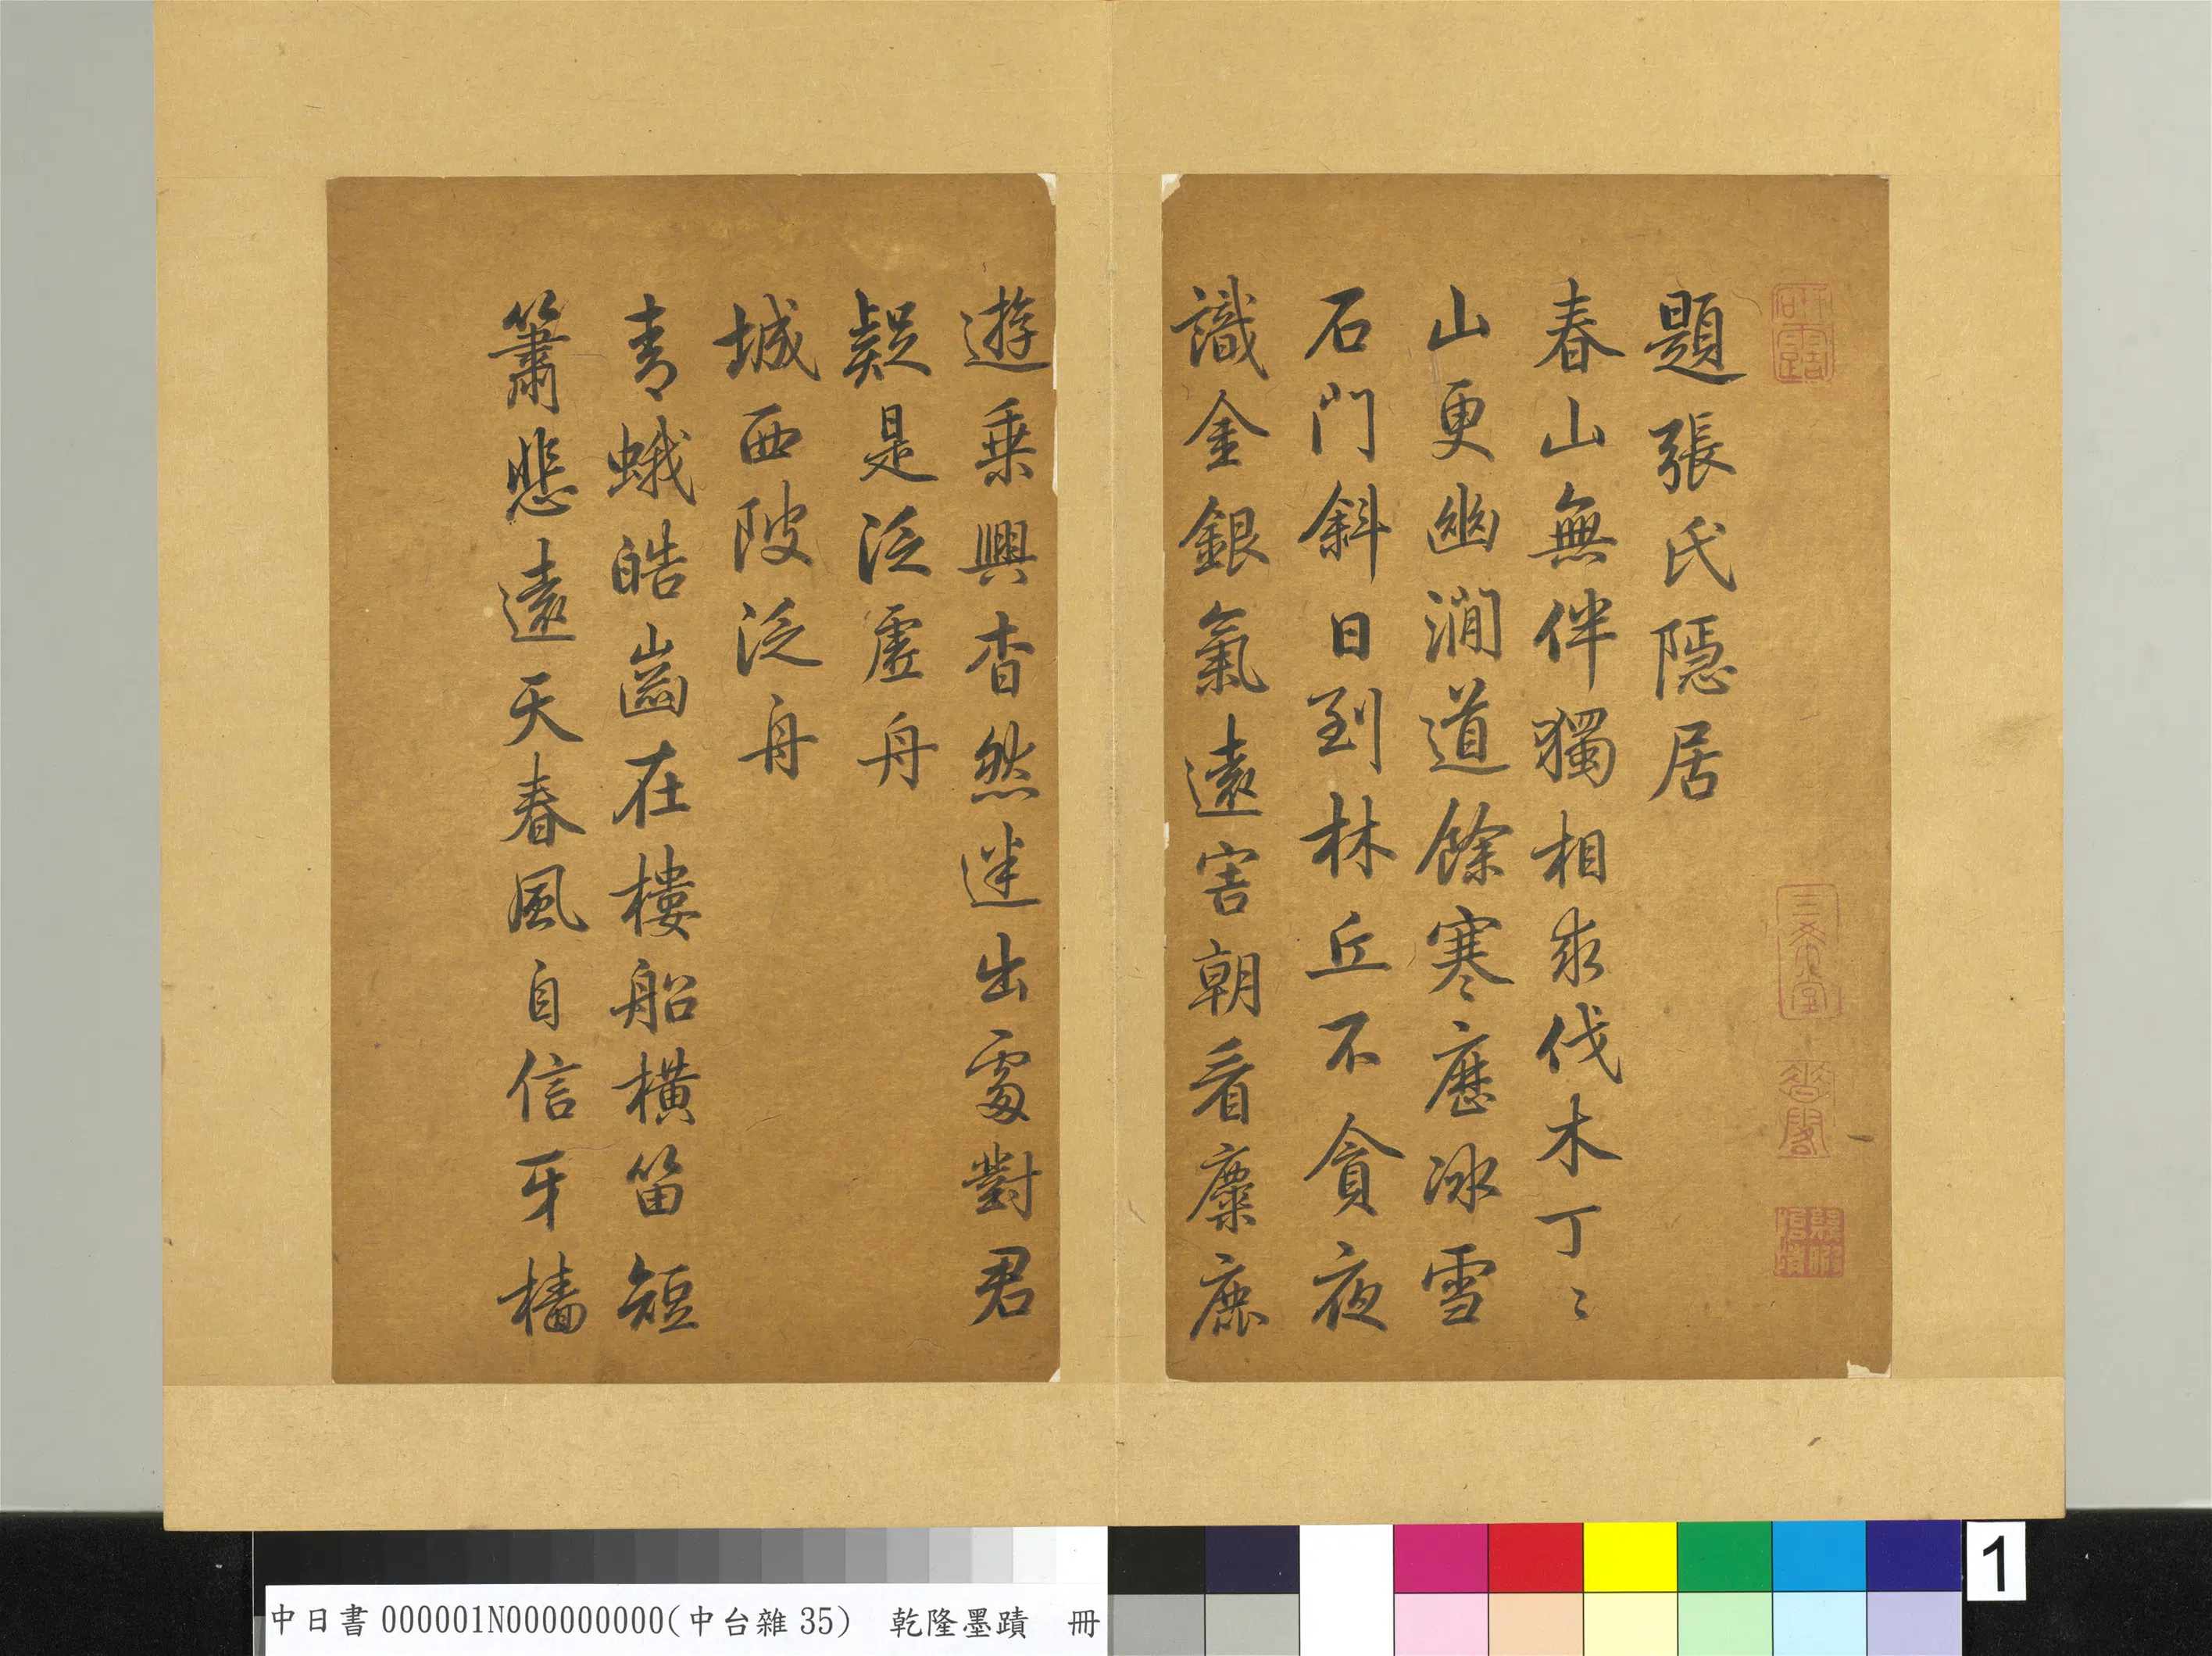 題張氏隱居
春山無伴獨相求伐木丁〻
山更幽澗道餘寒歷冰雪
石門斜日到林丘不貪夜
識金銀氣遠害朝看麋鹿
遊乘興杳然迷出處對君
疑是泛虛舟
城西陂泛舟
青蛾皓齒在樓船橫笛短
簫悲遠天春風自信牙檣
研露
三希堂
中日書000001N000000000(中台雜35) 乾隆墨蹟 冊
1